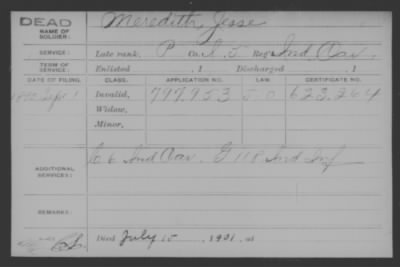 DEAD
NAME OF SOLDIER: Meredith, Jesse
SERVICE: Late rank, P Co. L, 5 Reg't Ind Cav.
TERM OF SERVICE: Enlisted , 1 Discharged , 1
DATE OF FILING. CLASS. APPLICATION NO. LAW. CERTIFICATE NO.
Sept 1 Invalid, 797.953 623.264
Widow,
Minor,
ADDITIONAL SERVICES: C 6 Ind Cav. G 118 Ind Inf
REMARKS:
Died July 10 , 1901, at